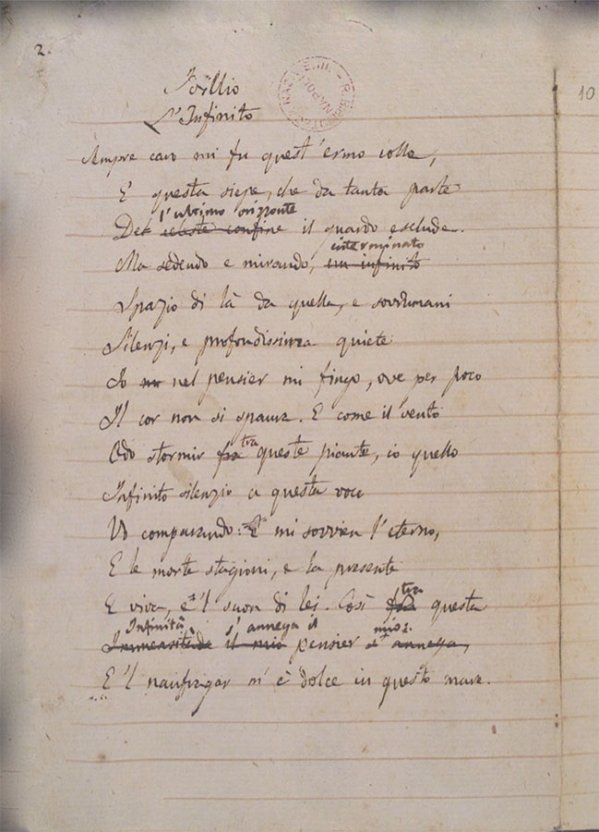 2.
10
Idillio
L'Infinito
Sempre caro mi fu quest'ermo colle,
E questa siepe, che da tanta parte
l'ultimo orizzonte
Del celeste confine il guardo esclude.
interminato
Ma sedendo e mirando, un infinito
Spazio di là da quella, e sovrumani
Silenzi, e profondissima quiete
Io nel pensier mi fingo, ove per poco
Il cor non si spaura. E come il vento
tra
Odo stormir fra queste piante, io quello
Infinito silenzio a questa voce
Vo comparando: E mi sovvien l'eterno,
E le morte stagioni, e la presente
tra
E viva, e 'l suon di lei. Così fra questa
Infinità s'annega il mio:
Immensitade il mio pensier s'annega,
E 'l naufragar m'è dolce in questo mare.